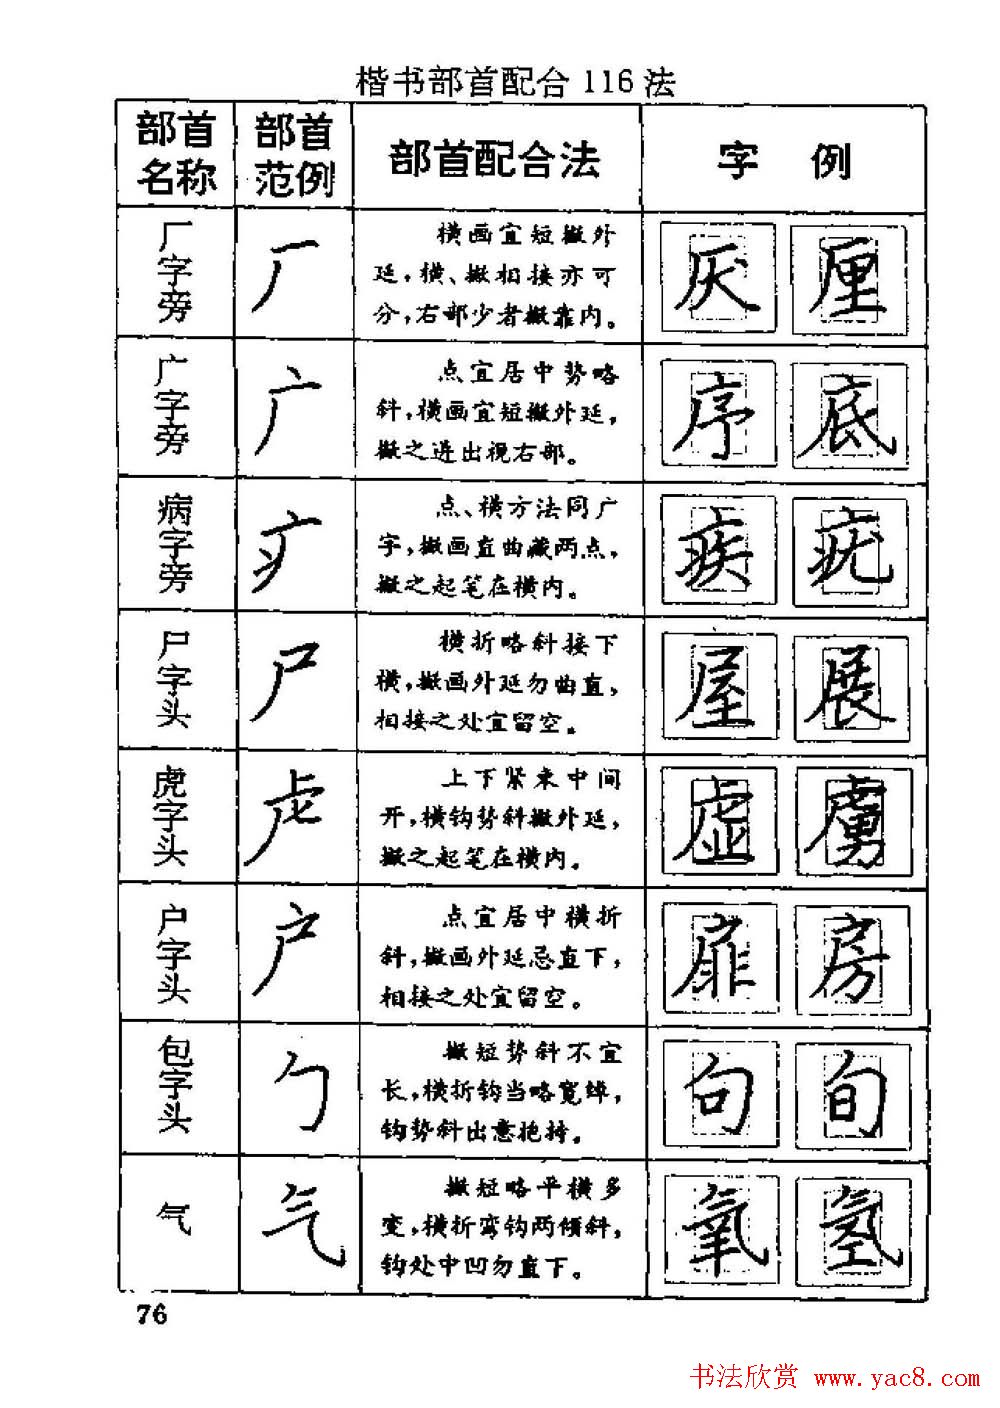 楷书部首配合116法
部首名称 部首范例 部首配合法 字 例
厂字旁 厂 横画宜短撇外 厌 厘
延，横、撇相接亦可
分，右部少者撇靠内。
广字旁 广 点宜居中势略 序 底
斜，横画宜短撇外延，
撇之进出视右部。
病字旁 疒 点、横方法同广 疾 疣
字，撇画直曲藏两点，
撇之起笔在横内。
尸字头 尸 横折略斜接下 屋 展
横，撇画外延勿曲直，
相接之处宜留空。
虎字头 虍 上下紧束中间 虚 虏
开，横钩势斜撇外延，
撇之起笔在横内。
户字头 户 点宜居中横折 扉 房
斜，撇画外延忌直下，
相接之处宜留空。
包字头 勹 撇短势斜不宜 句 旬
长，横折钩当略宽绰，
钩势斜出意抱持。
气 气 撇短略平横多 氧 氢
变，横折弯钩两倾斜，
钩处中凹勿直下。
76
书法欣赏 www.yac8.com